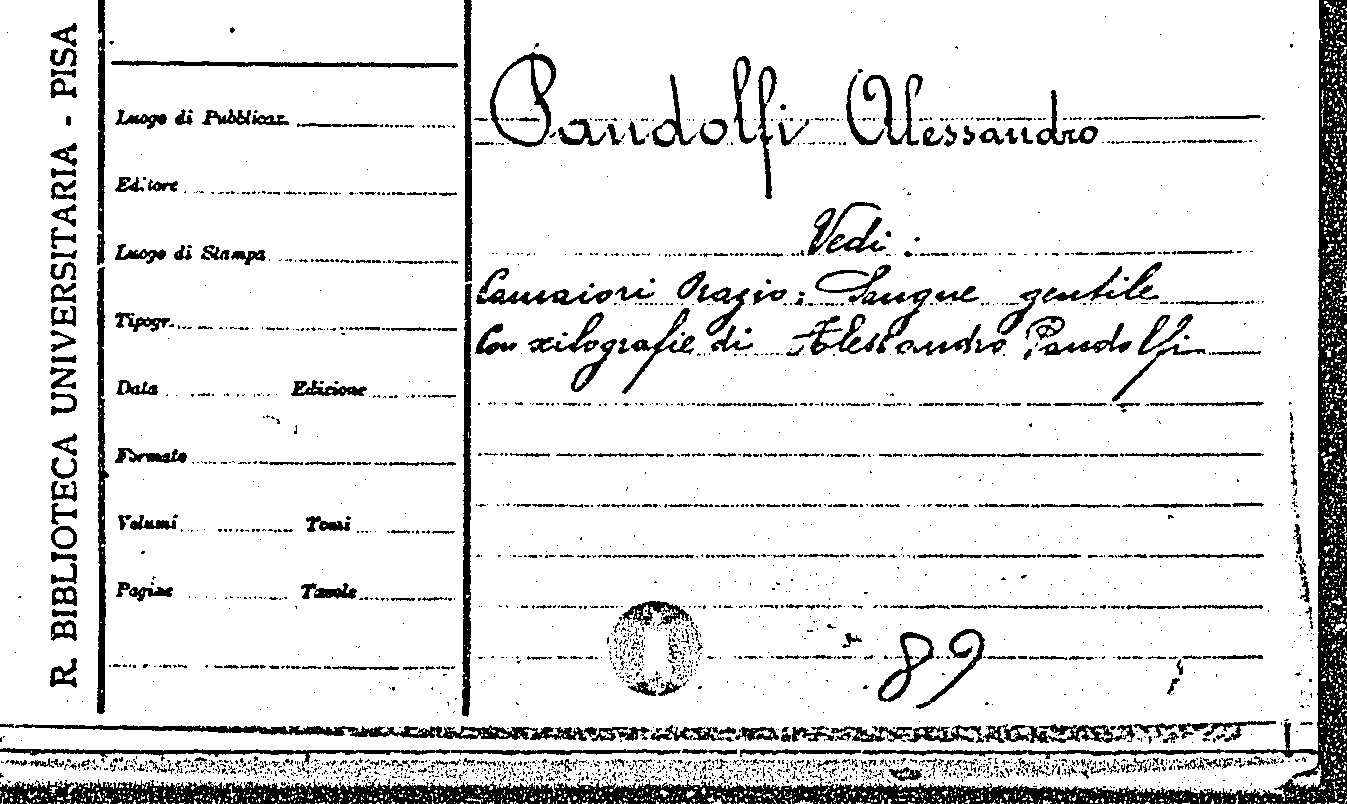 R. BIBLIOTECA UNIVERSITARIA - PISA
Luogo di Pubblicaz.
Editore
Luogo di Stampa
Tipogr.
Data Edizione
Formato
Volumi Tomi
Pagine Tavole
Pandolfi Alessandro
Vedi:
Camaiori Orazio: Sangue gentile
Con xilografie di Alessandro Pandolfi
89